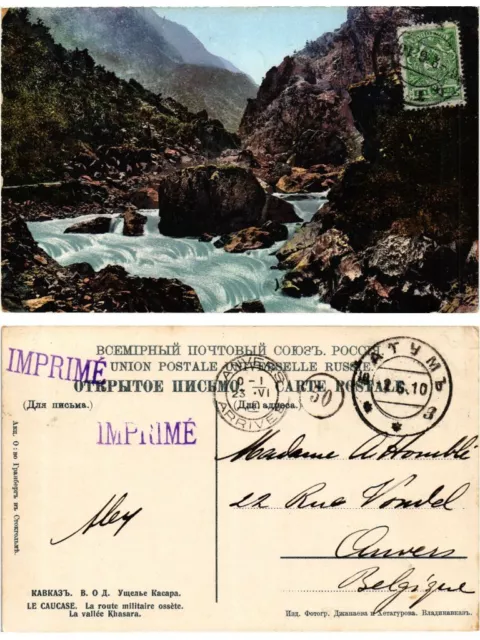 ВСЕМІРНЫЙ ПОЧТОВЫЙ СОЮЗЪ. РОССІЯ
UNION POSTALE UNIVERSELLE RUSSIE.
ОТКРЫТОЕ ПИСЬМО. CARTE POSTALE.
(Для письма.)
(Для адреса.)
IMPRIMÉ
IMPRIMÉ
ANVERS
23 VI
ARRIVÉE
30
БАТУМЪ
2.6.10
Madame A. Homblé
22 Rue Vondel
Anvers
Belgique
Alex
Акц. О-во Гранбергъ въ Стокгольмѣ.
КАВКАЗЪ. В. О Д. Ущелье Касара.
LE CAUCASE. La route militaire ossète.
La vallée Khasara.
Изд. Фотогр. Джанаева и Хетагурова. Владикавказъ.